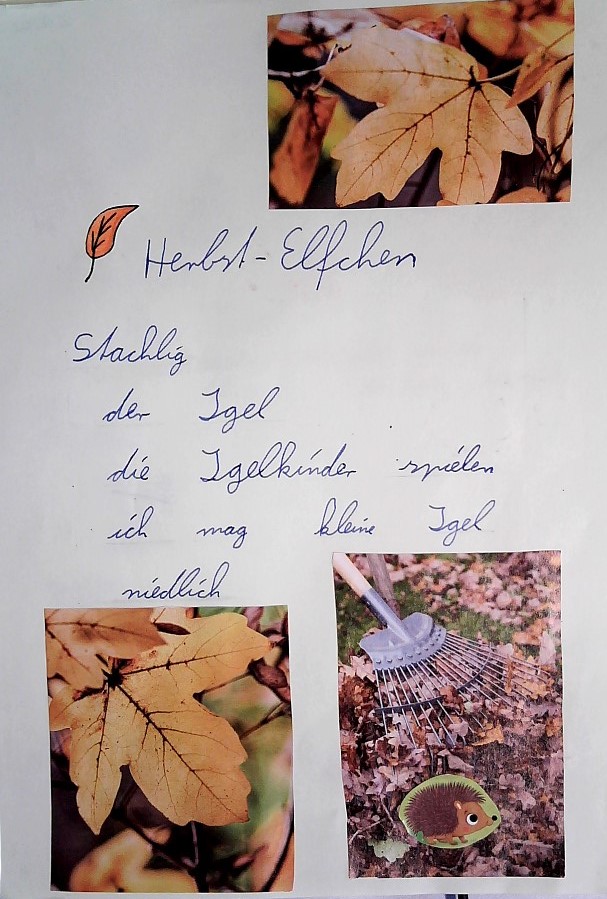 Herbst-Elfchen
Stachlig
der Igel
die Igelkinder spielen
ich mag kleine Igel
niedlich